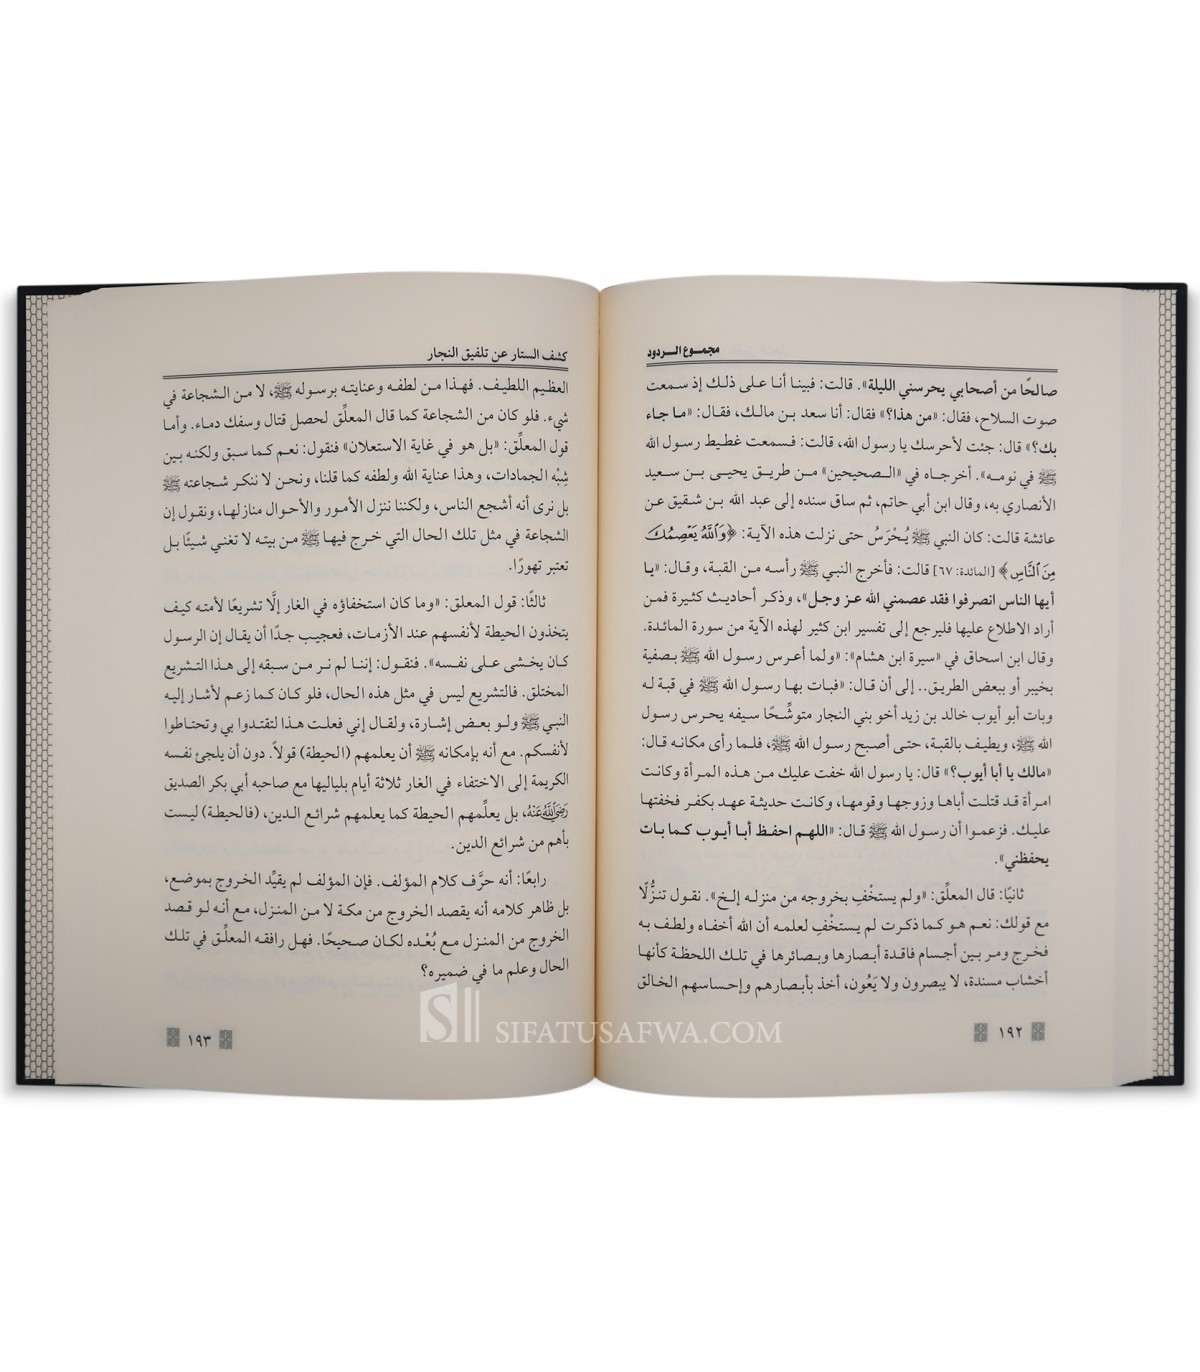 مجموع الـردود
صالحًا من أصحابي يحرسني الليلة». قالت: فبينا أنا على ذلك إذ سمعت
صوت السلاح، فقال: «من هذا؟» فقال: أنا سعد بن مالك، فقال: «ما جاء
بك؟» قال: جئت لأحرسك يا رسول الله، قالت: فسمعت غطيط رسول الله
ﷺ في نومه». أخرجاه في «الصحيحين» من طريق يحيى بن سعيد
الأنصاري به، وقال ابن أبي حاتم، ثم ساق سنده إلى عبد الله بن شقيق عن
عائشة قالت: كان النبي ﷺ يُحْرَسُ حتى نزلت هذه الآية: ﴿وَٱللَّهُ يَعۡصِمُكَ
مِنَ ٱلنَّاسِ﴾ [المائدة: ٦٧] قالت: فأخرج النبي ﷺ رأسه من القبة، وقال: «يا
أيها الناس انصرفوا فقد عصمني الله عز وجل»، وذكر أحاديث كثيرة فمن
أراد الاطلاع عليها فليرجع إلى تفسير ابن كثير لهذه الآية من سورة المائدة.
وقال ابن اسحاق في «سيرة ابن هشام»: «ولما أعرس رسول الله ﷺ بصفية
بخيبر أو ببعض الطريق.. إلى أن قال: «فبات بها رسول الله ﷺ في قبة له
وبات أبو أيوب خالد بن زيد أخو بني النجار متوشِّحًا سيفه يحرس رسول
الله ﷺ، ويطيف بالقبة، حتى أصبح رسول الله ﷺ، فلما رأى مكانه قال:
«مالك يا أبا أيوب؟» قال: يا رسول الله خفت عليك من هذه المرأة وكانت
امرأة قد قتلت أباها وزوجها وقومها، وكانت حديثة عهد بكفر فخفتها
عليك. فزعموا أن رسول الله ﷺ قال: «اللهم احفظ أبا أيوب كما بات
يحفظني».
ثانيًا: قال المعلِّق: «ولم يستخْفِ بخروجه من منزله إلخ». نقول تنزُّلًا
مع قولك: نعم هو كما ذكرت لم يستخْفِ لعلمه أن الله أخفاه ولطف به
فخرج ومر بين أجسام فاقدة أبصارها وبصائرها في تلك اللحظة كأنها
أخشاب مسندة، لا يبصرون ولا يَعُون، أخذ بأبصارهم وإحساسهم الخالق
١٩٢
كشف الستار عن تلفيق النجار
العظيم اللطيف. فهذا من لطفه وعنايته برسوله ﷺ، لا من الشجاعة في
شيء. فلو كان من الشجاعة كما قال المعلِّق لحصل قتال وسفك دماء. وأما
قول المعلِّق: «بل هو في غاية الاستعلان» فنقول: نعم كما سبق ولكنه بين
شِبْه الجمادات، وهذا عناية الله ولطفه كما قلنا، ونحن لا ننكر شجاعته ﷺ
بل نرى أنه أشجع الناس، ولكننا ننزل الأمور والأحوال منازلها، ونقول إن
الشجاعة في مثل تلك الحال التي خرج فيها ﷺ من بيته لا تغني شيئًا بل
تعتبر تهورًا.
ثالثًا: قول المعلق: «وما كان استخفاؤه في الغار إلَّا تشريعًا لأمته كيف
يتخذون الحيطة لأنفسهم عند الأزمات، فعجيب جدًا أن يقال إن الرسول
كان يخشى على نفسه». فنقول: إننا لم نر من سبقه إلى هذا التشريع
المختلق. فالتشريع ليس في مثل هذه الحال، فلو كان كما زعم لأشار إليه
النبي ﷺ ولو بعض إشارة، ولقال إني فعلت هذا لتقتدوا بي وتحتاطوا
لأنفسكم. مع أنه بإمكانه ﷺ أن يعلمهم (الحيطة) قولاً. دون أن يلجئ نفسه
الكريمة إلى الاختفاء في الغار ثلاثة أيام بلياليها مع صاحبه أبي بكر الصديق
رَضِيَٱللَّهُعَنْهُ، بل يعلِّمهم الحيطة كما يعلمهم شرائع الدين، (فالحيطة) ليست
بأهم من شرائع الدين.
رابعًا: أنه حرَّف كلام المؤلف. فإن المؤلف لم يقيِّد الخروج بموضع،
بل ظاهر كلامه أنه يقصد الخروج من مكة لا من المنزل، مع أنه لو قصد
الخروج من المنزل مع بُعْده لكان صحيحًا. فهل رافقه المعلِّق في تلك
الحال وعلم ما في ضميره؟
١٩٣
SIFATUSAFWA.COM